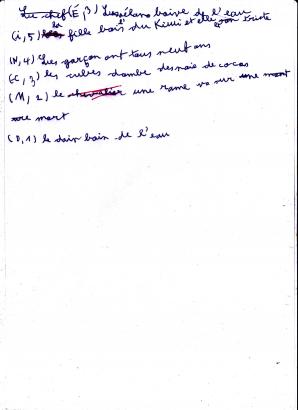 Lu chef (É, 3) Lusélano baive de l'eau
(i, 5) la fille bois du Kiwi et elle son triste
(N, 4) Lus garçon ont tous neuf ans
(C, 3) les cubes d'ambe des nois de cocos
(M, 2) le chevalier une rame va sur une mont
re mort
(D, 1) le dain bain de l'eau